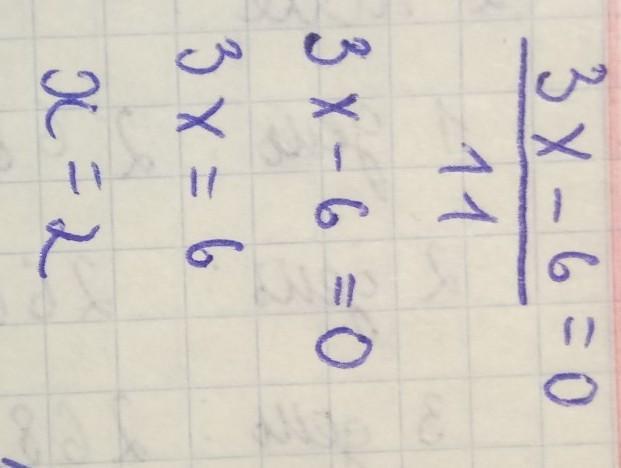 3x - 6 = 0
11
3x - 6 = 0
3x = 6
x = 2